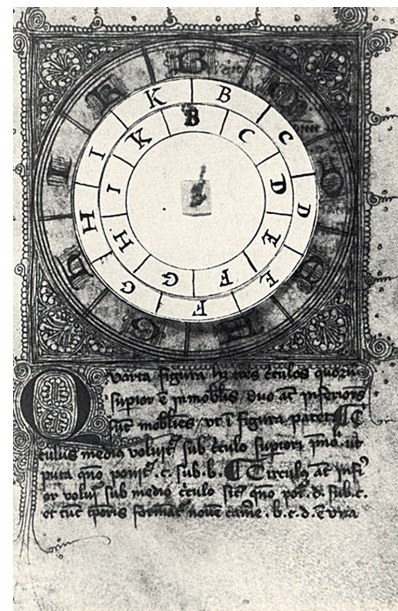 B C D E F G H I K
B C D E F G H I K
B C D E F G H I K
Quarta figura hz tres cĉulos quorū
supior ē īmobĺis, duo at̄ inferiores
sut̄ mobiles, ut ī figura patet ¶ C
culus medio voluit᷑ sub cĉulo supiori ut
puta qn̄o ponit᷑ .c. sub .b. ¶ Circulꝰ at̄ infi
or voluit᷑ sub medio cĉulo sic̄ qn̄o .d. sub .c.
et tūc tp̄oris formāt᷑ nouē cam̄e .b.c.d. ē vna